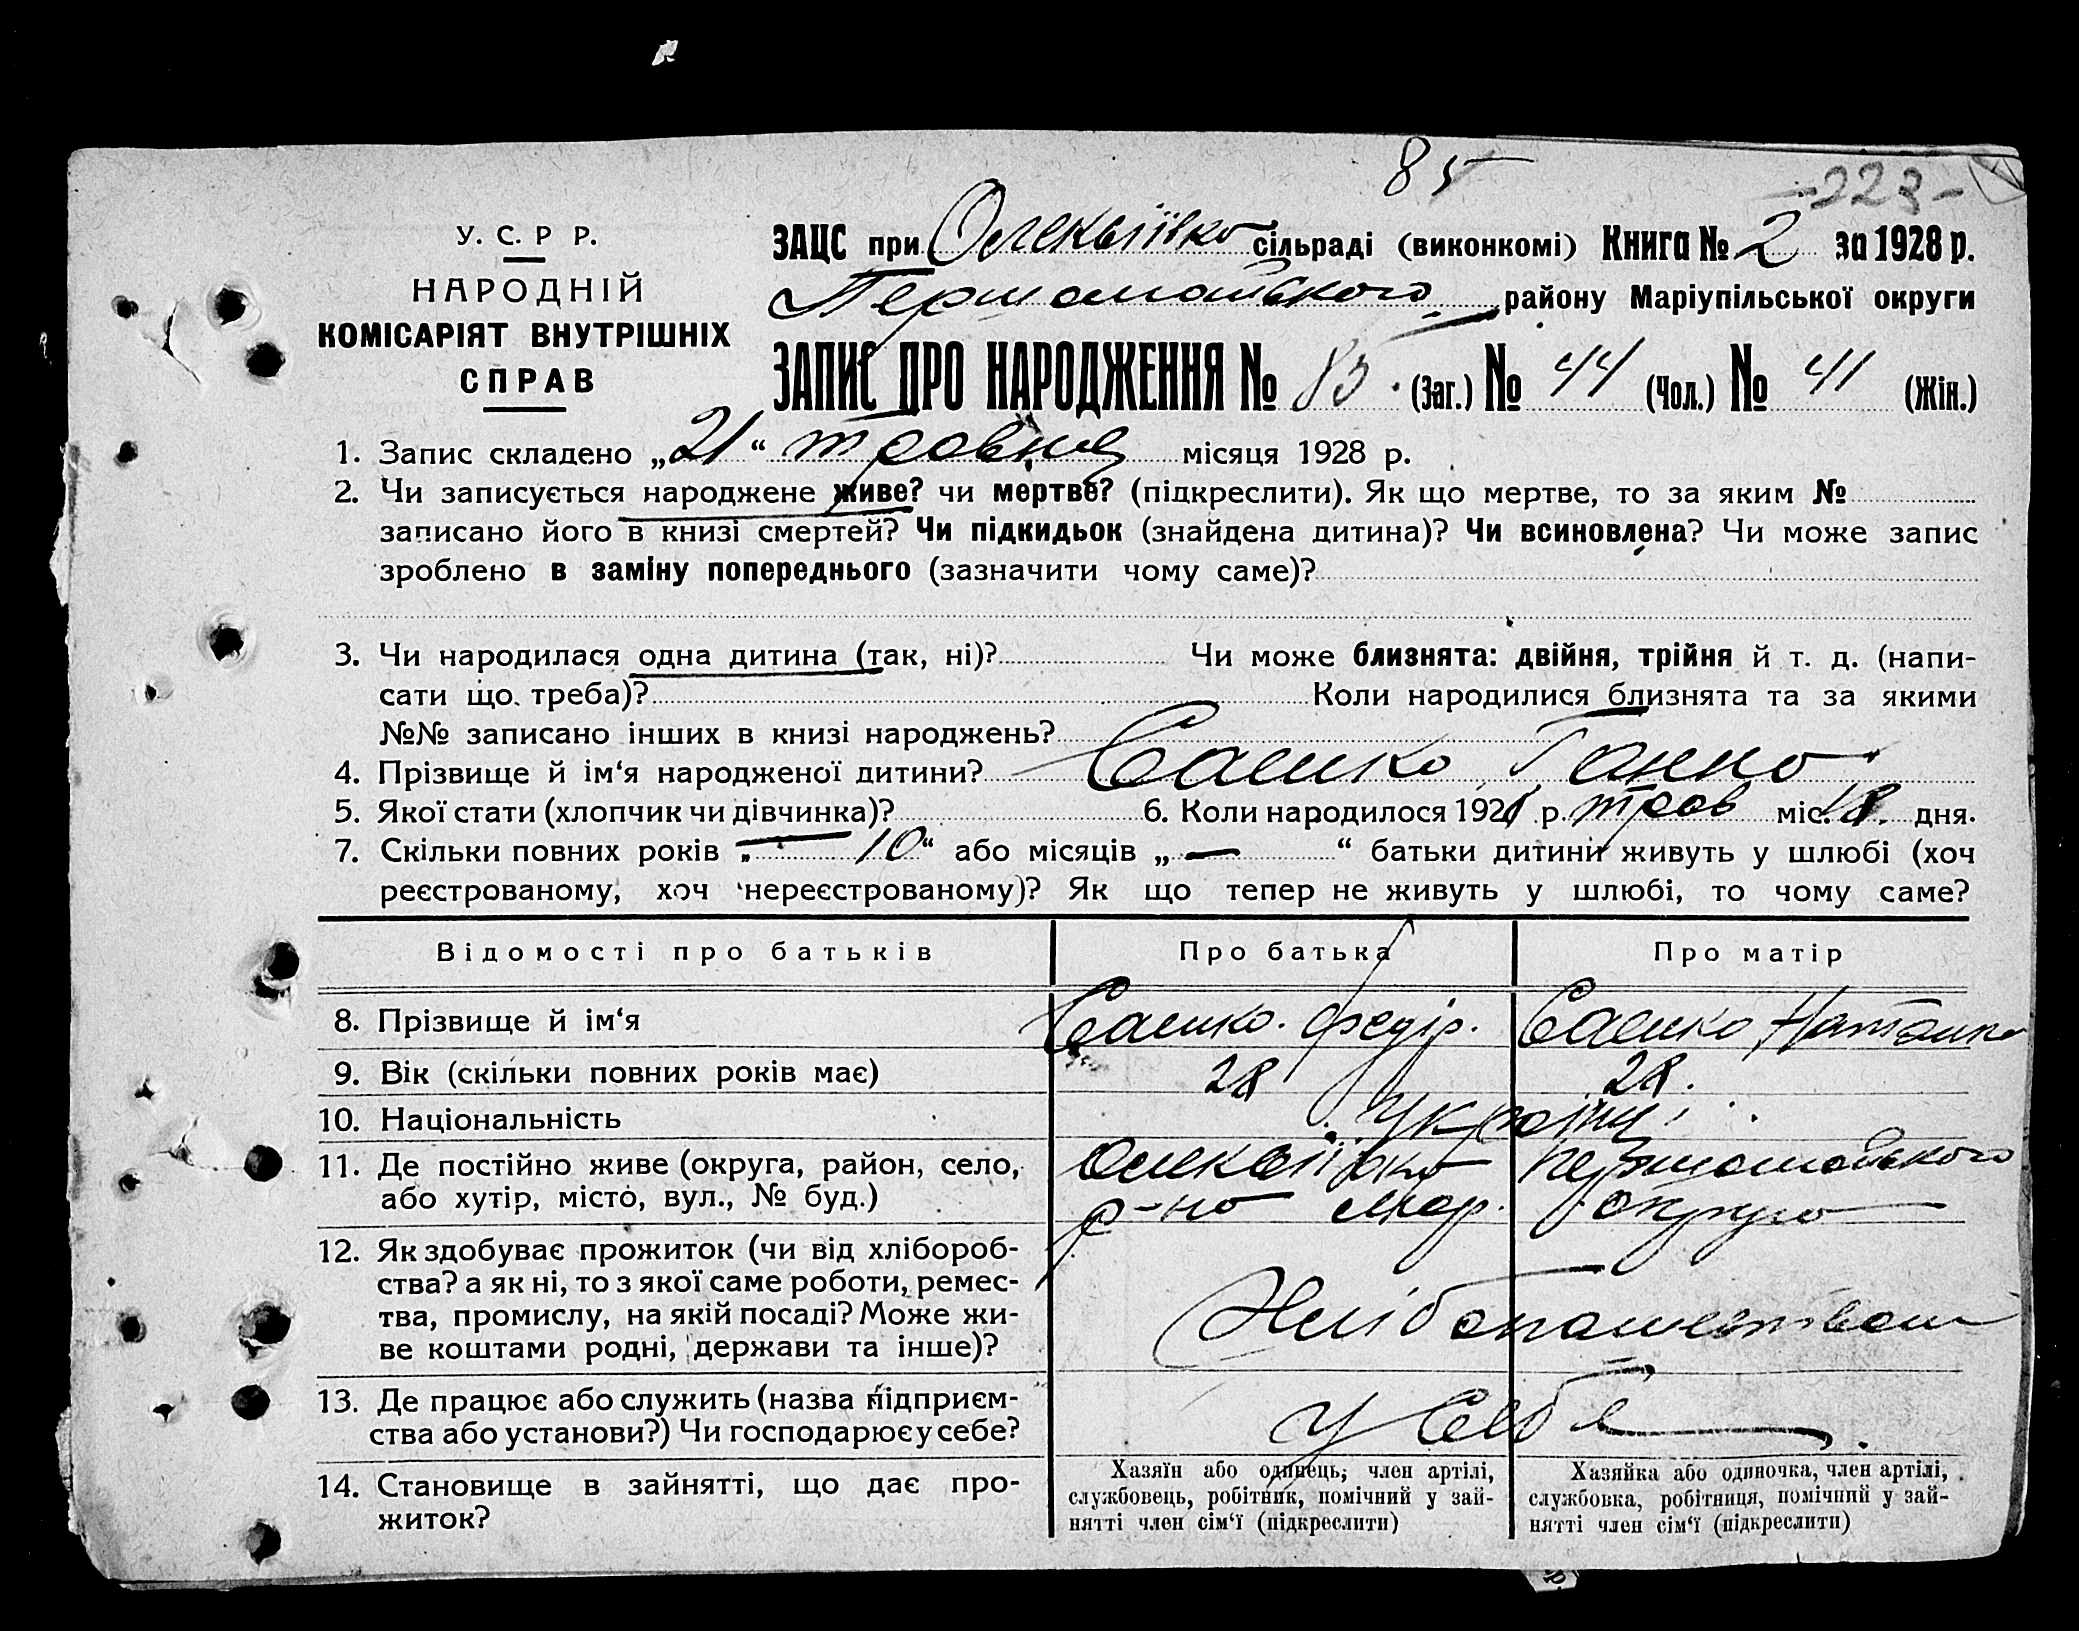 85
-223-
У. С. Р Р.
НАРОДНІЙ
КОМІСАРІЯТ ВНУТРІШНІХ
СПРАВ
ЗАЦС при Олексіївко сільраді (виконкомі) Книга № 2 за 1928 р.
Першомайського району Маріупільської округи
ЗАПИС ПРО НАРОДЖЕННЯ № 85 (Заг.) № 44 (Чол.) № 41 (Жін.)
1. Запис складено „21“ травня місяця 1928 р.
2. Чи записується народжене живе? чи мертве? (підкреслити). Як що мертве, то за яким №
записано його в книзі смертей? Чи підкидьок (знайдена дитина)? Чи всиновлена? Чи може запис
зроблено в заміну попереднього (зазначити чому саме)?
3. Чи народилася одна дитина (так, ні)? Чи може близнята: двійня, трійня й т. д. (напи-
сати що треба)? Коли народилися близнята та за якими
№№ записано інших в книзі народжень?
4. Прізвище й ім‘я народженої дитини? Сашко Ганна
5. Якої стати (хлопчик чи дівчинка)? 6. Коли народилось 1928 р. трав міс. 18. дня.
7. Скільки повних років „ 10“ або місяців „ — “ батьки дитини живуть у шлюбі (хоч
реєстрованому, хоч нереєстрованому)? Як що тепер не живуть у шлюбі, то чому саме?
Відомості про батьків Про батька Про матір
8. Прізвище й ім‘я Сашко. Федір. Сашко
9. Вік (скільки повних років має) 28 28.
10. Національність Українці
11. Де постійно живе (округа, район, село, Олексіївка Першомайського
або хутір, місто, вул., № буд.) р-на Мар. округи
12. Як здобуває прожиток (чи від хлібороб-
ства? а як ні, то з якої саме роботи, ремес-
тва, промислу, на якій посаді? Може жи- Хлібопашеством
ве коштами родні, держави та інше)?
13. Де працює або служить (назва підприєм-
ства або установи?) Чи господарює у себе? У себе
14. Становище в зайнятті, що дає про-
житок?
Хазяїн або одинець, член артілі,
службовець, робітник, помічний у зай-
нятті член сім‘ї (підкреслити)
Хазяйка або одиночка, член артілі,
службовка, робітниця, помічний у зай-
нятті член сім‘ї (підкреслити)